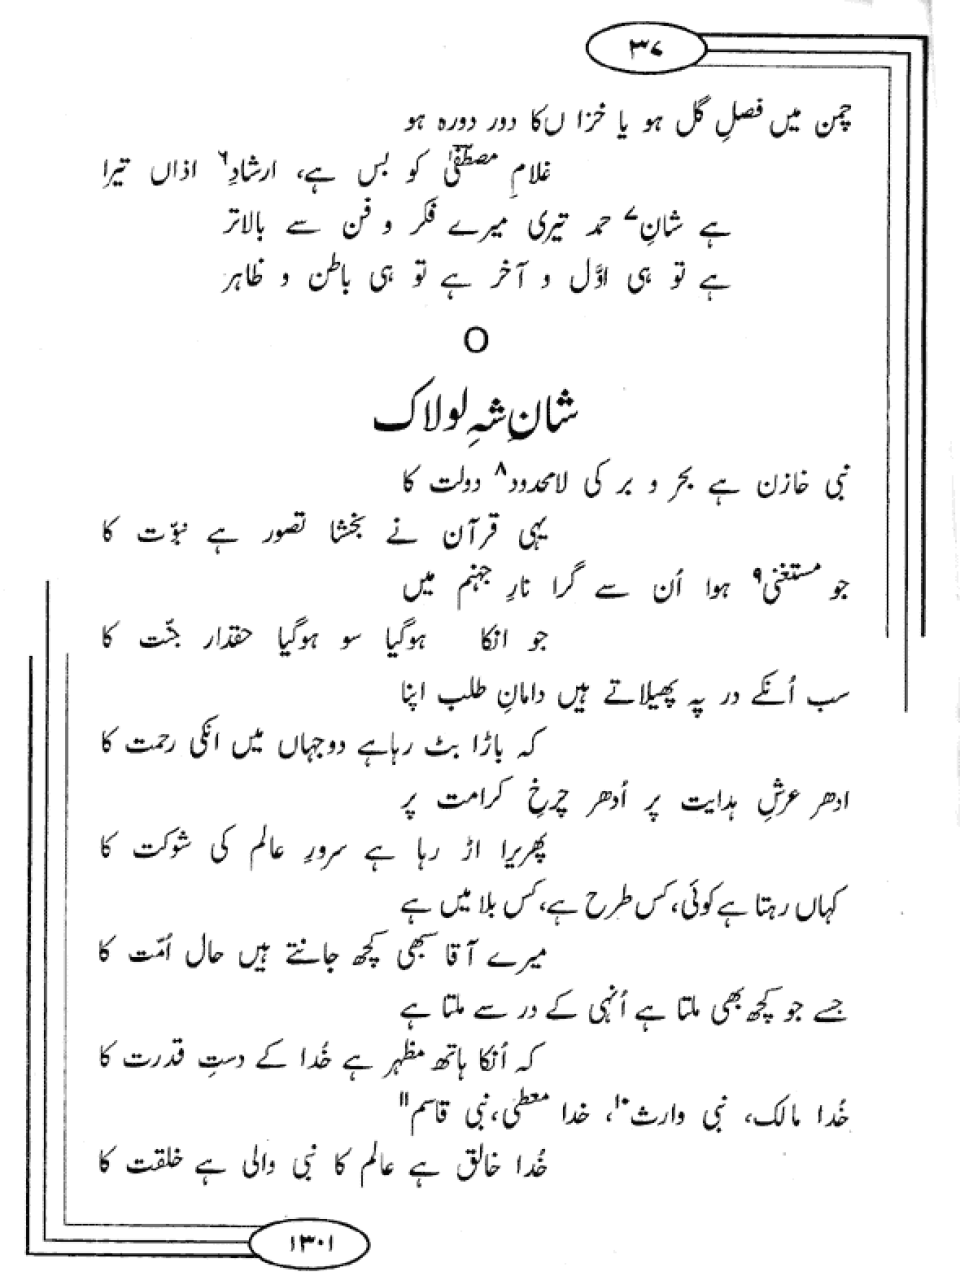 ۳۷
چمن میں فصلِ گل ہو یا خزاں کا دور دورہ ہو
غلامِ مصطفیٰؐ کو بس ہے، ارشادِ۶ اذاں تیرا
ہے شانِ۷ حمد تیری میرے فکر و فن سے بالاتر
ہے تو ہی اوّل و آخر ہے تو ہی باطن و ظاہر
O
شانِ شہِ لولاک
نبی خازن ہے بحر و بر کی لامحدود۸ دولت کا
یہی قرآن نے بخشا تصور ہے نبوّت کا
جو مستغنی۹ ہوا اُن سے گرا نارِ جہنم میں
جو انکا ہوگیا سو ہوگیا حقدار جنّت کا
سب اُنکے در پہ پھیلاتے ہیں دامانِ طلب اپنا
کہ باڑا بٹ رہاہے دوجہاں میں انکی رحمت کا
ادھر عرشِ ہدایت پر اُدھر چرخِ کرامت پر
پھریرا اڑ رہا ہے سرورِ عالم کی شوکت کا
کہاں رہتا ہے کوئی، کس طرح ہے، کس بلا میں ہے
میرے آقا سبھی کچھ جانتے ہیں حال اُمّت کا
جسے جو کچھ بھی ملتا ہے اُنہی کے در سے ملتا ہے
کہ اُنکا ہاتھ مظہر ہے خُدا کے دستِ قدرت کا
خُدا مالک، نبی وارث۱۰، خدا معطی، نبی قاسم۱۱
خُدا خالق ہے عالم کا نبی والی ہے خلقت کا
۱۳۰۱